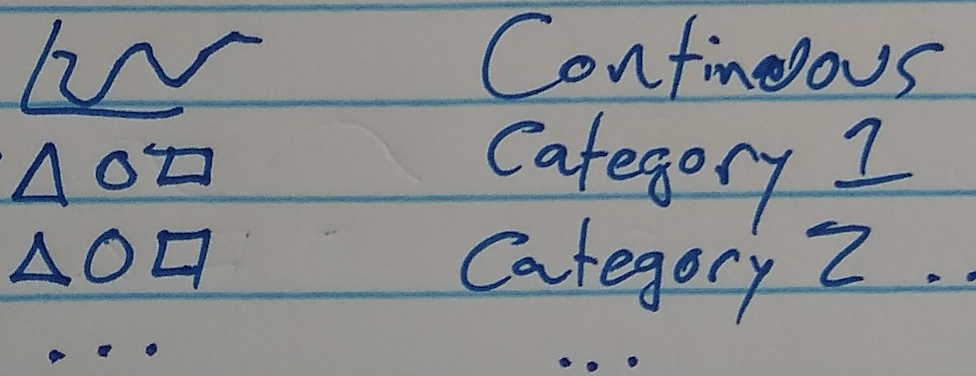 Continuous
Category 1
Category 2 ..
...
...